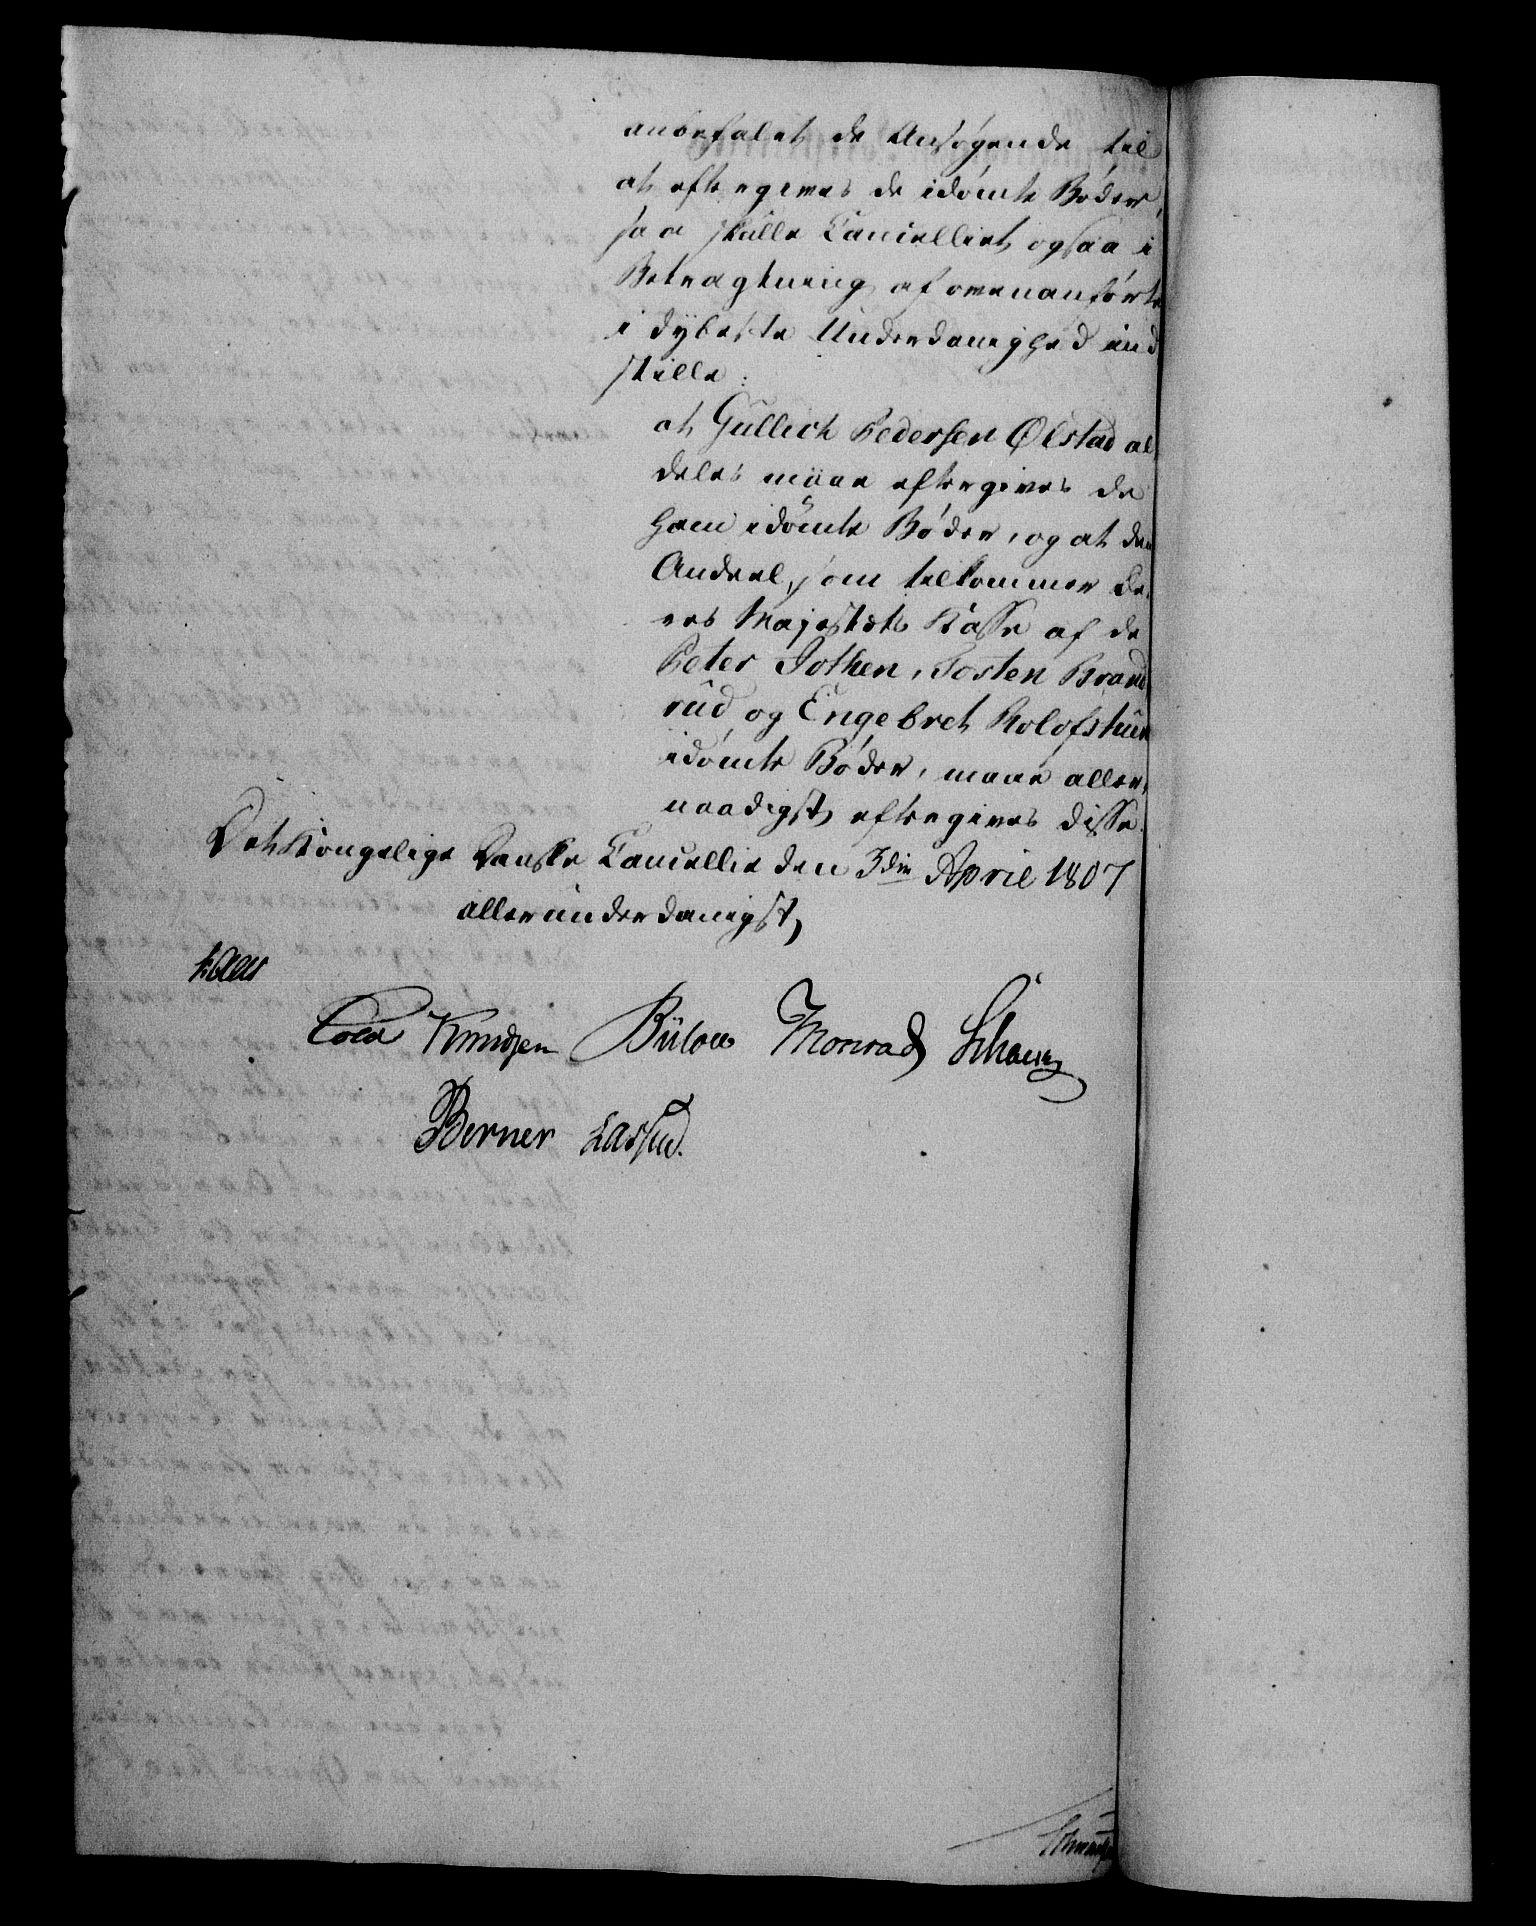 anbefalet de Ansøgende til
at eftergives de idømte Bøder,
saa skulle Cancelliet ogsaa i
Betragtning af ovenanførte
i dybeste Underdanighed ind
stille:
at Gullich Pedersen Ølstad al
deles maae eftergives de
ham idømte Bøder, og at den
Andeel, som tilkommer De,
res Majestæts Kasse af de
Peter Jothen, Tosten Brand
rud og Engebret Rolofshuus
idømte Bøder, maae aller,
naadigst eftergives disse.
Det Kongelige Danske Cancellie den 3die April 1807
allerunderdanigst
Kaas
Cold Knudsen Bülow Monrad Schønn
Berner Lassen.